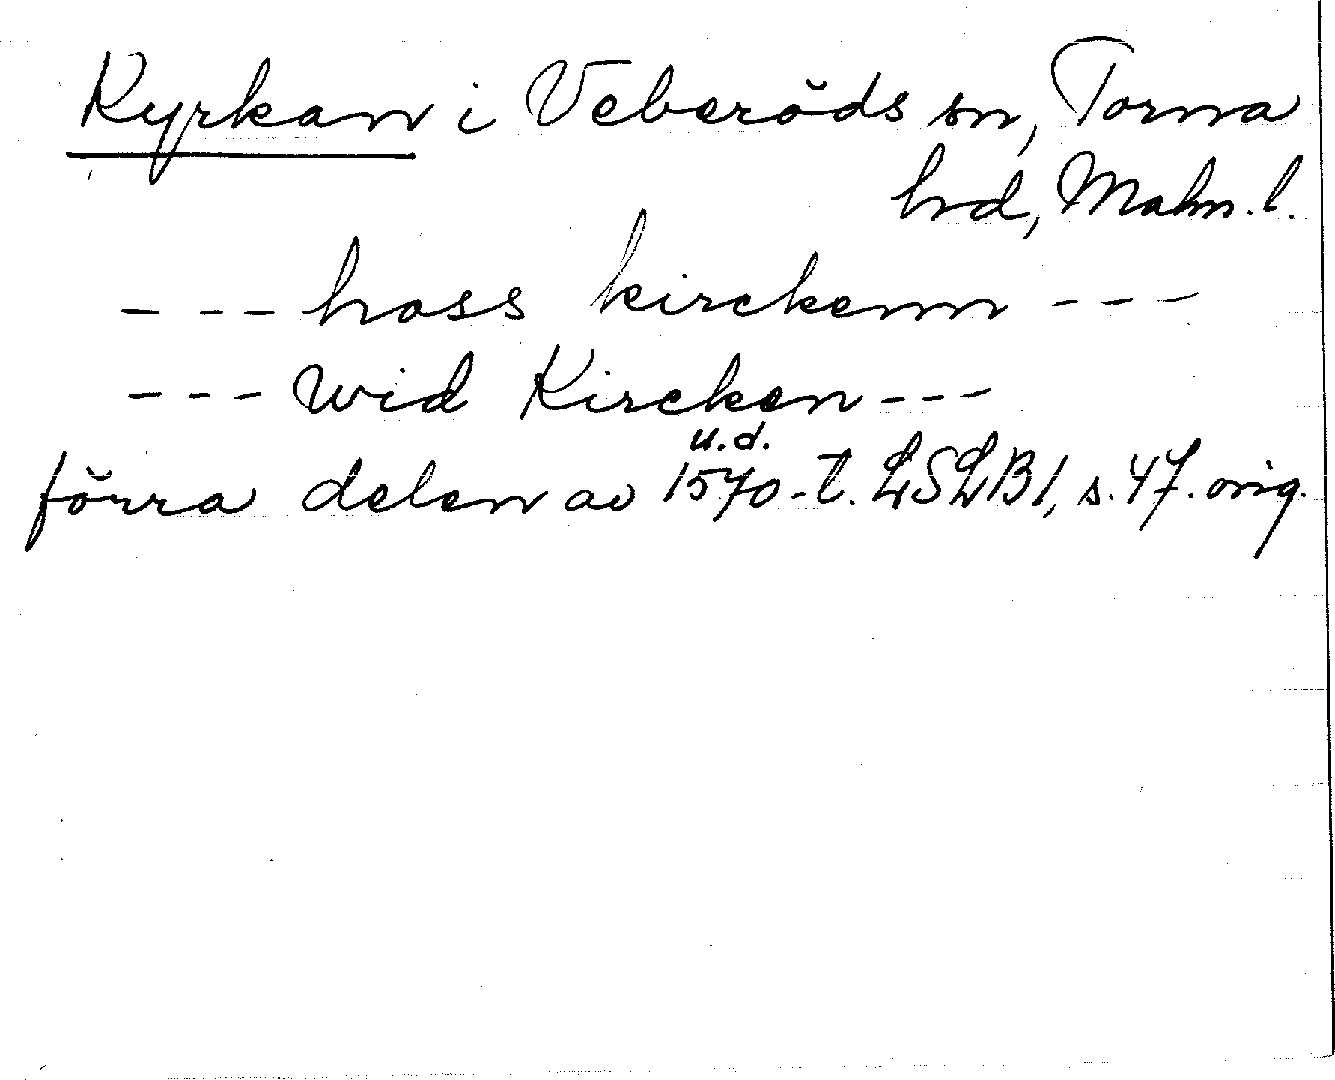 Kyrkan i Veberöds sn, Torna
hrd, Malm. l.
--- hoss kirckenn ---
--- wid Kircken ---
u.d.
förra delen av 1570-t. LSLB1, s. 47. orig.